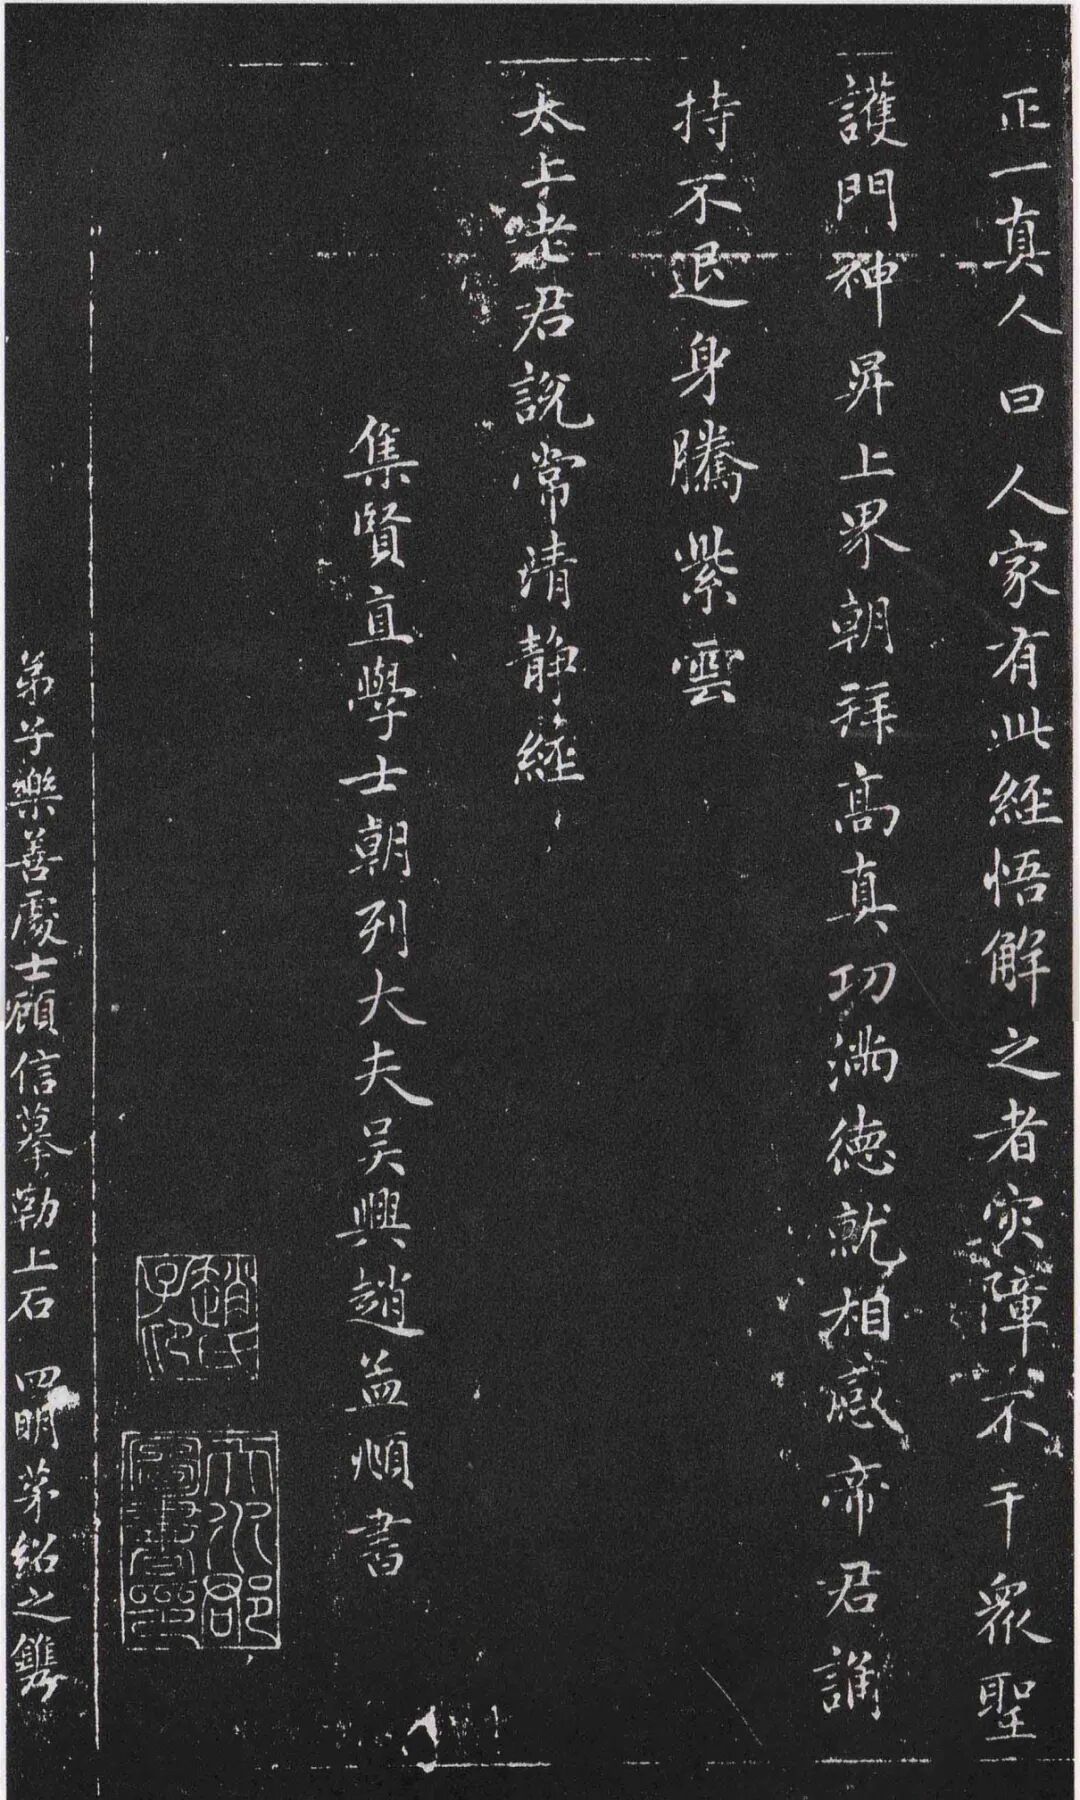 正一真人曰人家有此經悟解之者灾障不干衆聖
護門神昇上界朝拜高真功滿德就相感帝君誦
持不退身騰紫雲
太上老君說常清静經
集賢直學士朝列大夫吴興趙孟頫書
趙氏子昂
天水郡圖書印
弟子樂善處士顧信摹勒上石 四明茅紹之鐫